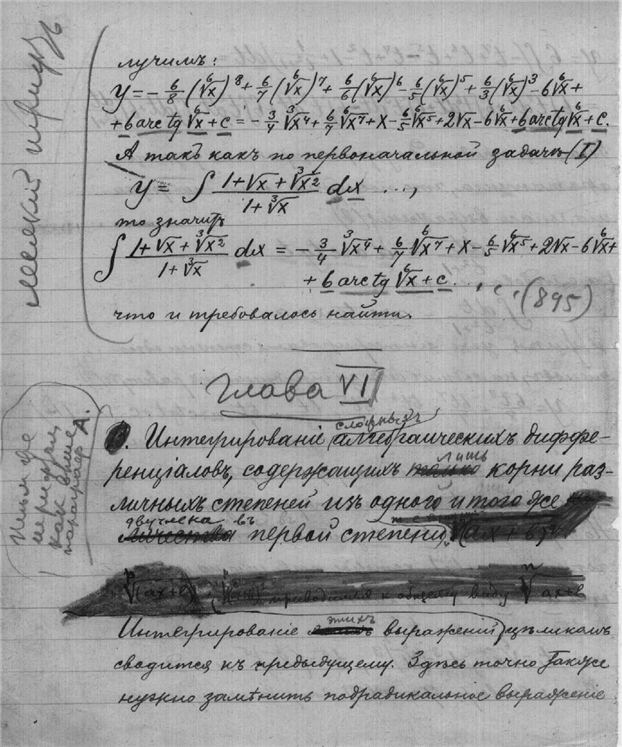 мелкий шрифтъ
лучимъ:
y = - 6/8 (⁶√x)⁸ + 6/7 (⁶√x)⁷ + 6/6 (⁶√x)⁶ - 6/5 (⁶√x)⁵ + 6/3 (⁶√x)³ - 6⁶√x +
+ 6 arc tg ⁶√x + c = - 3/4 ³√x⁴ + 6/7 ⁶√x⁷ + x - 6/5 ⁶√x⁵ + 2√x - 6⁶√x + 6 arc tg ⁶√x + c.
А такъ какъ по первоначальной задачѣ (I)
y = ∫ (1 + √x + ³√x²)/(1 + ³√x) dx ...,
то значитъ
∫ (1 + √x + ³√x²)/(1 + ³√x) dx = - 3/4 ³√x⁴ + 6/7 ⁶√x⁷ + x - 6/5 ⁶√x⁵ + 2√x - 6⁶√x +
+ 6 arc tg ⁶√x + c. . . . (895)
что и требовалось найти.
Глава VI
сложныхъ
Интегрированіе алгебраическихъ диффе-
ренціаловъ, содержащихъ лишь корни раз-
личныхъ степеней изъ одного и того же
двучлена въ
первой степени, (ax + b)
шрифтъ
какъ выше
параграф А.
√(ax+b) приводимыя к общему виду ⁿ√ax+b
этихъ
Интегрированіе выраженій цѣликомъ
сводится къ предыдущему. Здѣсь точно также
нужно замѣнить подрадикальное выраженіе